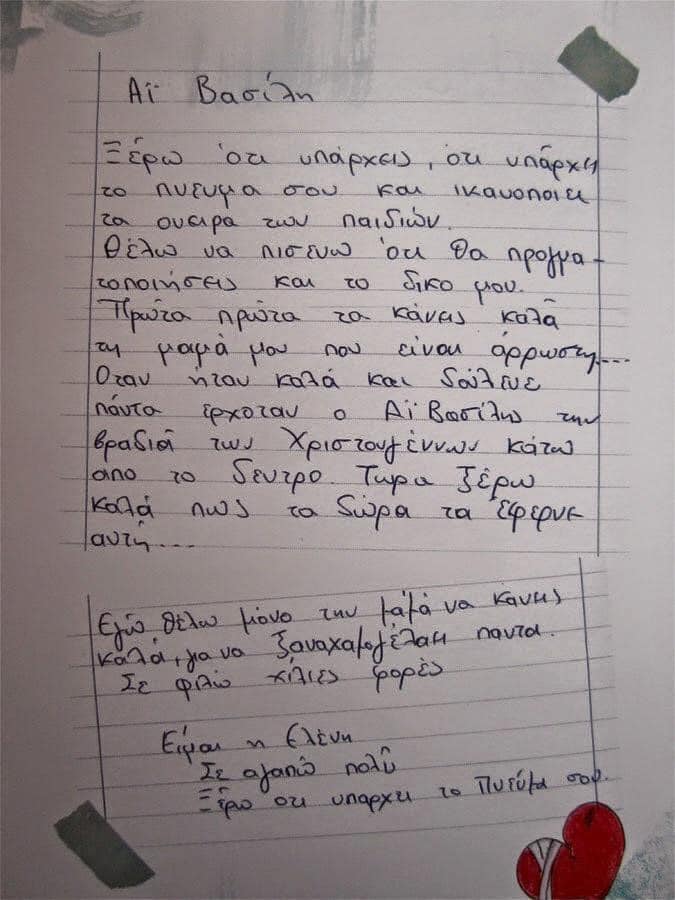 Αϊ Βασίλη
Ξέρω ότι υπάρχεις, ότι υπάρχη
το πνευμα σου και ικανοποιει
τα ονειρα των παιδιών.
Θέλω να πισευω ότι θα πραγμα-
τοποιήσεις και το δικο μου.
Πρώτα πρώτα να κάνεις καλά
τη μαμά μου που είναι άρρωστη....
Οταν ήταν καλά και δούλευε
πάντα ερχόταν ο Αϊ Βασίλης την
βραδιά των Χριστουγέννων κάτω
απο το δεντρο. Τωρα ξέρω
καλά πως τα δώρα τα έφερνε
αυτή....
Εγώ θέλω μόνο την μαμά να κανεις
καλά, για να ξαναχαμογέλαει παντα.
Σε φιλώ χίλιες φορές
Είμαι η Ελένη
Σε αγαπώ πολύ
Ξέρω οτι υπαρχει το Πνεύμα σου.